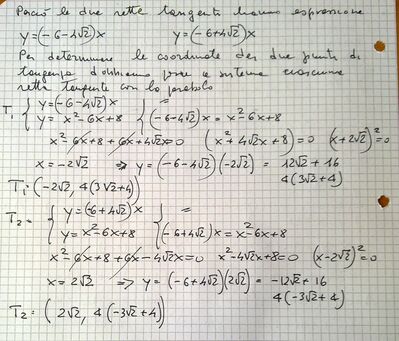 Perciò le due rette tangenti hanno espressione
y=(-6-4√2)x y=(-6+4√2)x
Per determinare le coordinate dei due punti di
tangenza dobbiamo porre a sistema ciascuna
retta tangente con la parabola
T₁ { y=(-6-4√2)x { =
y= x²-6x+8 (-6-4√2)x = x²-6x+8
x²-6x+8+6x+4√2x=0 (x²+4√2x+8)=0 (x+2√2)²=0
x=-2√2 ⇒ y=(-6-4√2)(-2√2) = 12√2+16
T₁=(-2√2, 4(3√2+4)) 4(3√2+4)
T₂= { y=(-6+4√2)x { =
y=x²-6x+8 (-6+4√2)x = x²-6x+8
x²-6x+8+6x-4√2x=0 x²-4√2x+8=0 (x-2√2)²=0
x=2√2 ⇒ y=(-6+4√2)(2√2) = -12√2+16
4(-3√2+4)
T₂= (2√2, 4(-3√2+4))